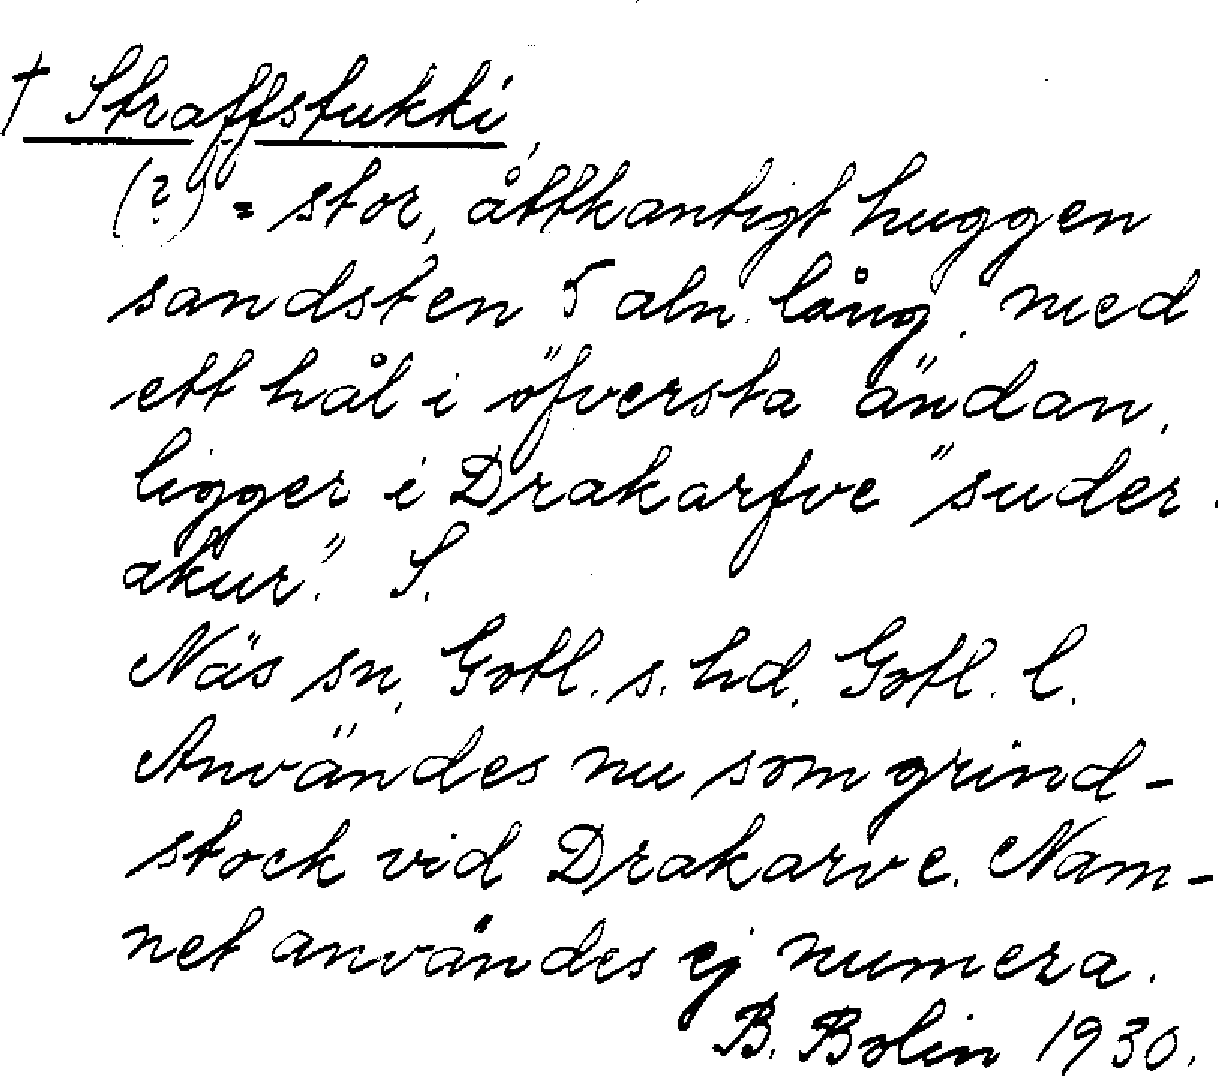 † Straffstukki
(?) = stor, åttkantigt huggen
sandsten 5 aln. lång, med
ett hål i öfversta ändan,
ligger i Drakarfve "suder-
åkur". S.
Näs sn, Gotl. s. hd, Gotl. l.
Användes nu som grind-
stock vid Drakarve. Nam-
net användes ej numera.
B. Bolin 1930.